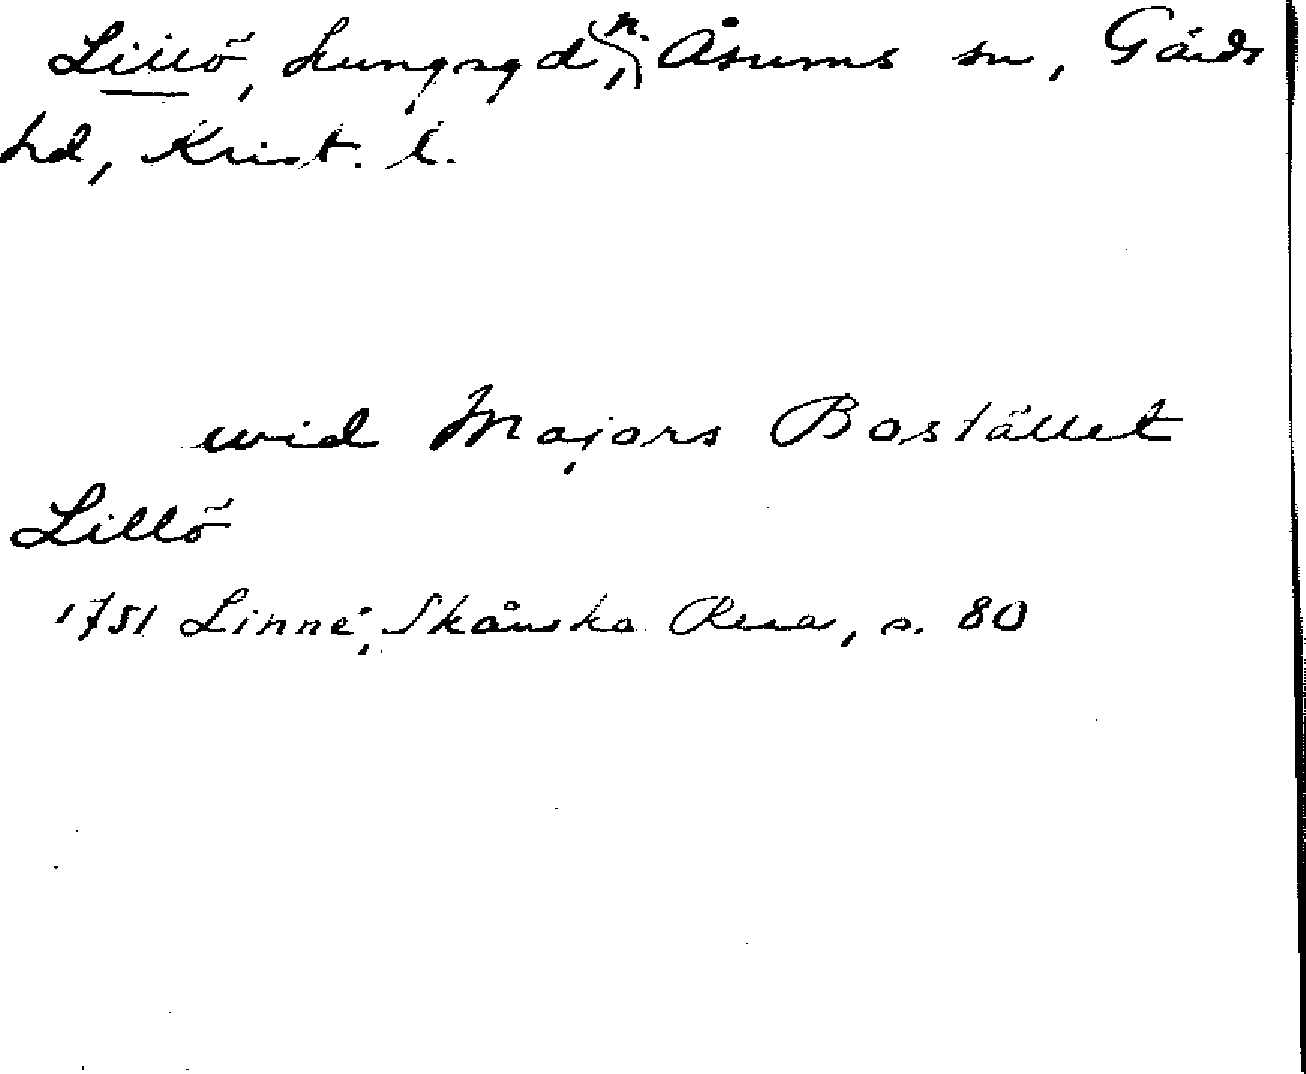 Lillö, kungsgd, n. Åsums sn, Gärds
hd, Krist. l.
wid Majors Bostället
Lillö
1751 Linné, Skånska Resa, s. 80